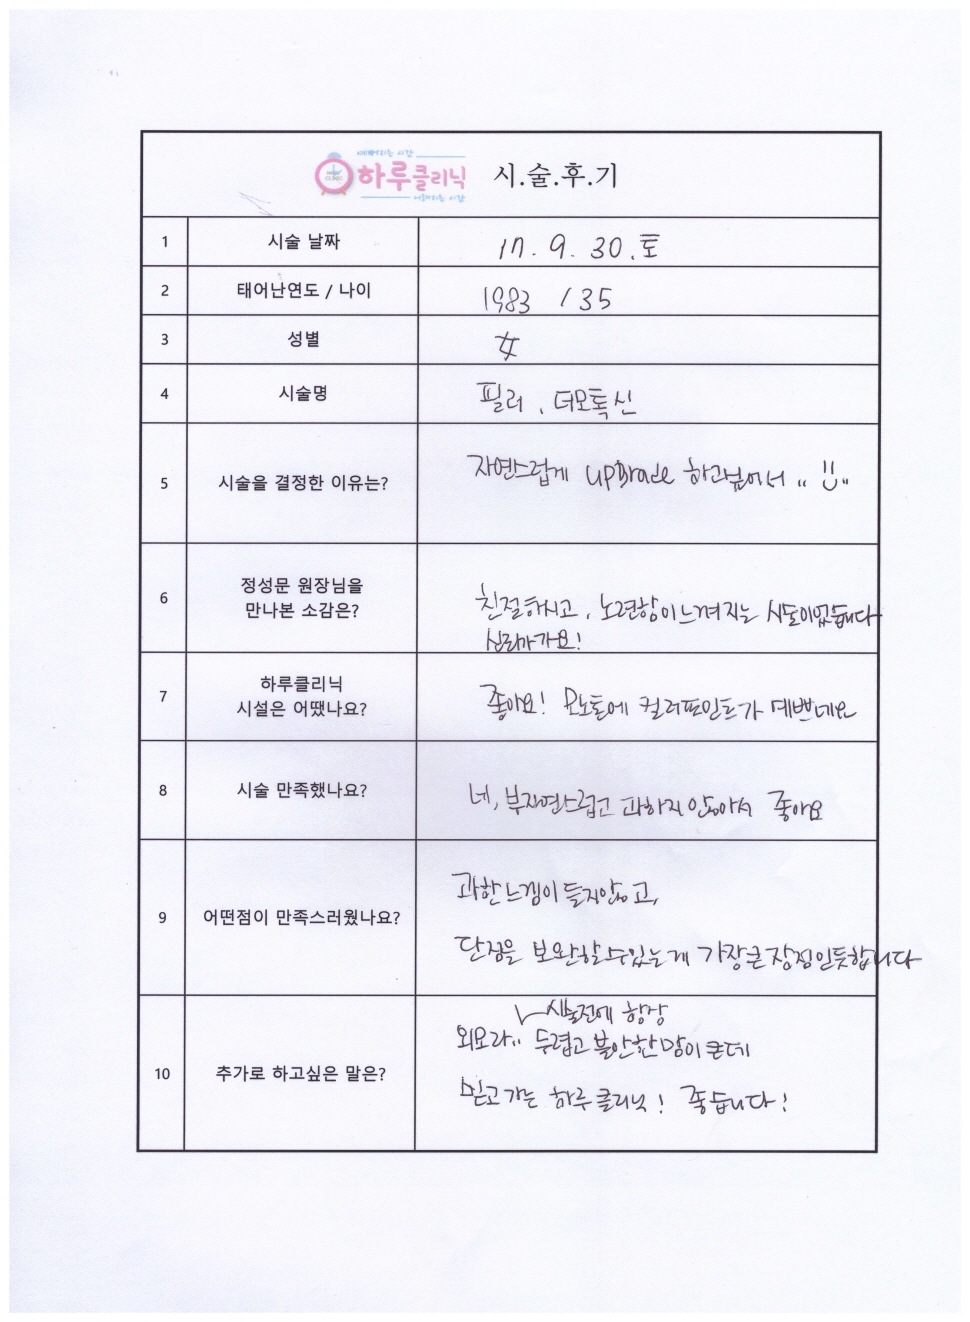 예뻐지는 시간
하루클리닉 시.술.후.기
어려지는 시간
1 시술 날짜 17. 9. 30. 토
2 태어난연도 / 나이 1983 / 35
3 성별 女
4 시술명 필러, 더모톡신
5 시술을 결정한 이유는? 자연스럽게 upgrade 하고싶어서
6 정성문 원장님을
만나본 소감은?
친절하시고, 노련함이느껴지는
신뢰가가요!
7 하루클리닉
시설은 어땠나요?
좋아요! 모노톤에 컬러포인트가 예쁘네요
8 시술 만족했나요? 네, 부자연스럽고 과하지 않아서 좋아요
9 어떤점이 만족스러웠나요?
과한느낌이 들지않고,
단점을 보완할수있는게 가장큰장점인듯합니다
10 추가로 하고싶은 말은?
시술전에 항상
두렵고 불안한맘이큰데
믿고가는 하루클리닉! 좋습니다!